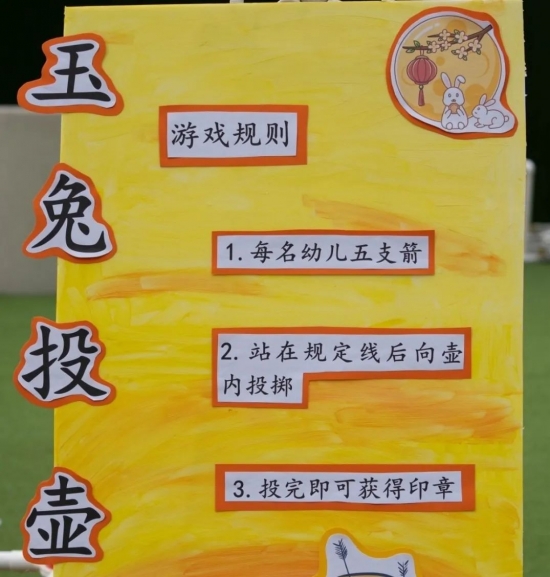 玉兔投壶
游戏规则
1. 每名幼儿五支箭
2. 站在规定线后向壶
内投掷
3. 投完即可获得印章